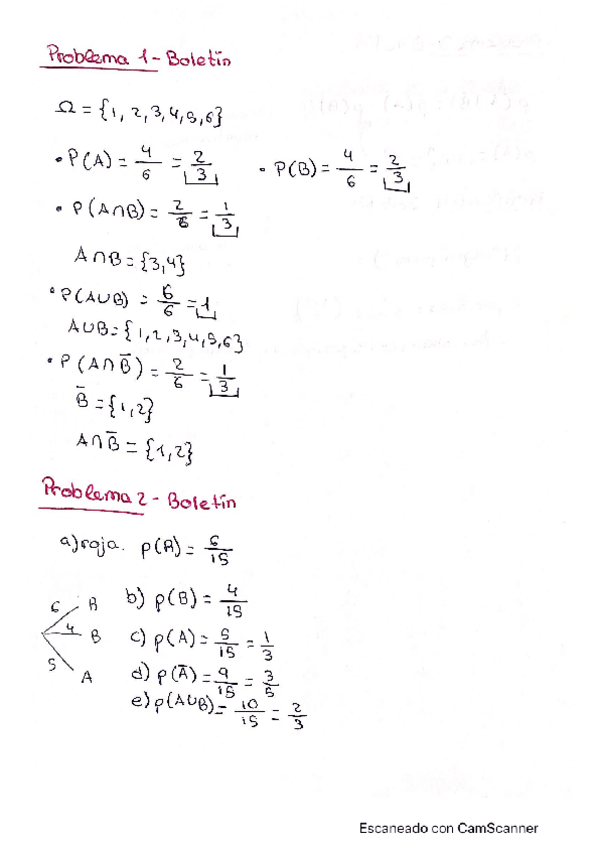 Problema 1 - Boletín
Ω = {1, 2, 3, 4, 5, 6}
• P(A) = 4/6 = 2/3 • P(B) = 4/6 = 2/3
• P(A∩B) = 2/6 = 1/3
A∩B = {3,4}
• P(A∪B) = 6/6 = 1
A∪B = {1, 2, 3, 4, 5, 6}
• P(A∩B̅) = 2/6 = 1/3
B̅ = {1,2}
A∩B̅ = {1,2}
Problema 2 - Boletín
a) roja. p(R) = 6/15
6 R
4 B
5 A
b) p(B) = 4/15
c) p(A) = 5/15 = 1/3
d) p(A̅) = 9/15 = 3/5
e) p(A∪B) = 10/15 = 2/3
Escaneado con CamScanner